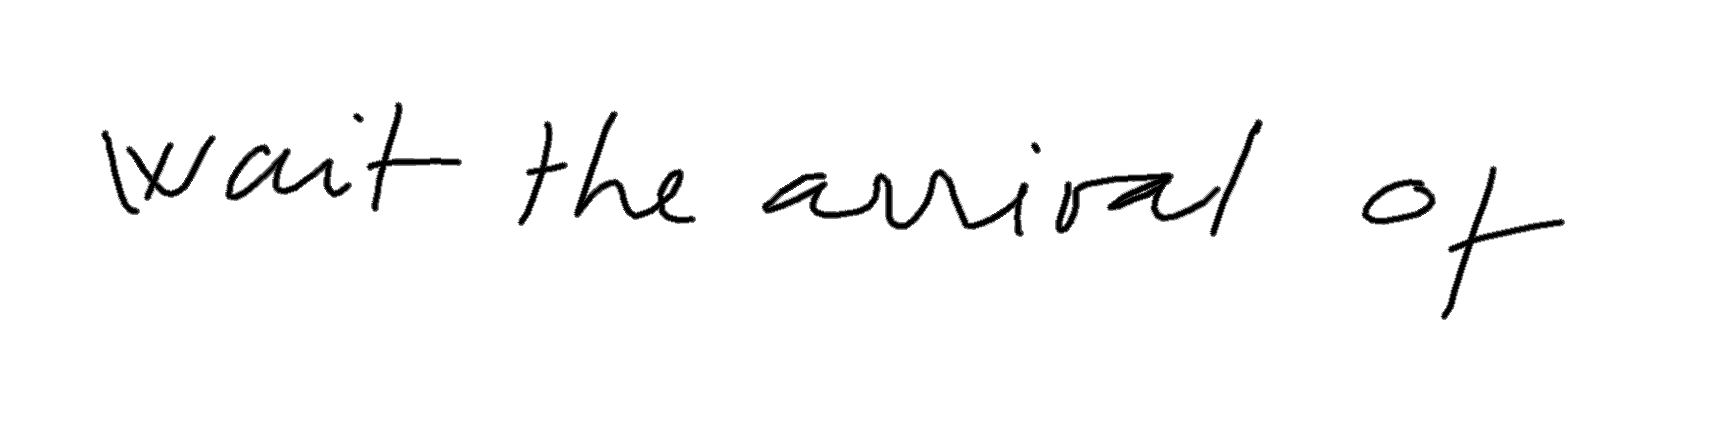 wait the arrival of